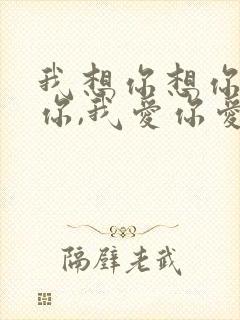 我想你想你
你,我爱你爱
隔壁老武